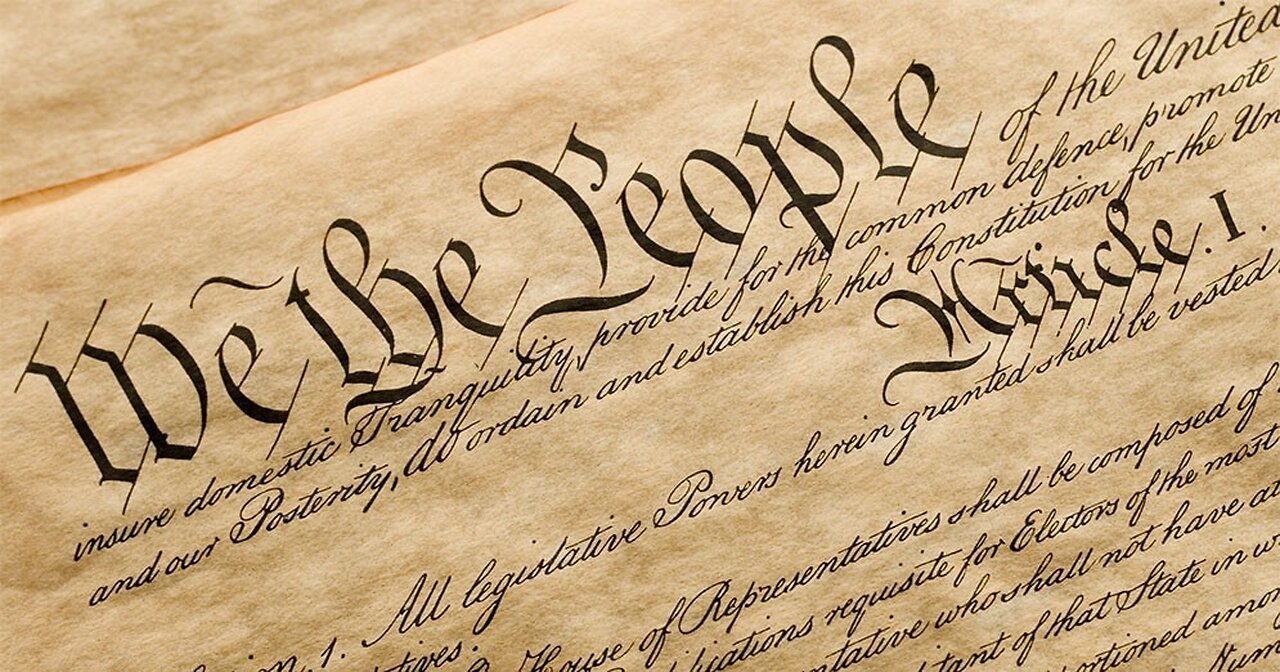 We the People of the United
insure domestic Tranquility, provide for the common defence, promote
and our Posterity, do ordain and establish this Constitution for the Un
Article. I.
n. 1. All legislative Powers herein granted shall be vested
tives.
House of Representatives shall be composed of
ications requisite for Electors of the most
ntative who shall not have at
tant of that State in w
ortioned amon
Num